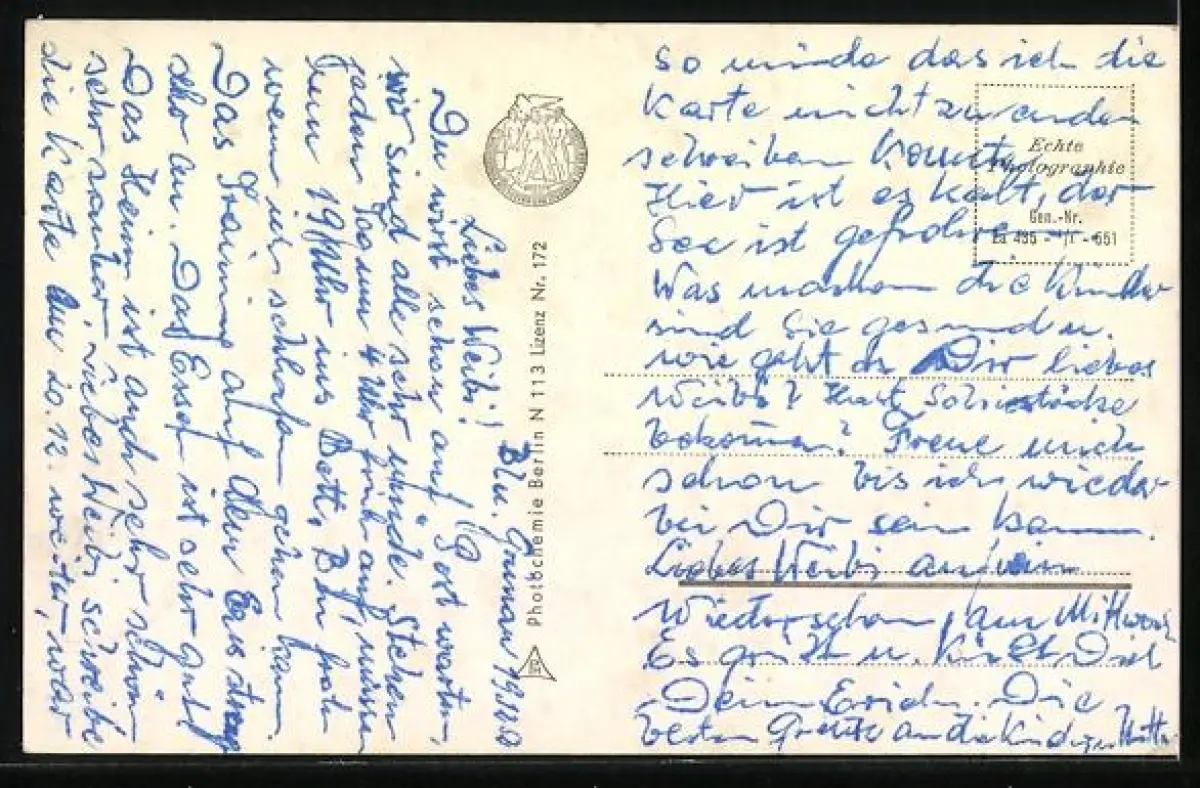 Bln. Grünau 19.12.60
Liebes Weibi!
Du wirst schon auf Post warten,
wir sind alle sehr müde. Stehen
jeden 4 Uhr früh auf, müssen
19 Uhr ins Bett. Bin froh
wenn ich schlafen gehen kann.
Das Training auf dem Eis strengt
sehr an. Das Essen ist sehr gut
Das Heim ist auch sehr schön
sehr sauber. Liebes Weibi schreibe
die Karte am 20.12. weiter, war
so müde das ich die
Karte nicht zu enden
schreiben konnte.
Hier ist es kalt, der
See ist gefroren
Was machen die Kinder
sind Sie gesund u.
wie geht es Dir liebes
Weibi? Hast
bekommen? Freue mich
schon bis ich wieder
bei Dir sein kann.
Liebes Weibi auf ein
Wiedersehen, am Mittwoch
Es grüßt u. küßt Dich
Dein Erich. Die
besten Grüße an die Kinder
Echte
Photographie
Gen.-Nr.
Photochemie Berlin N 113 Lizenz Nr. 172